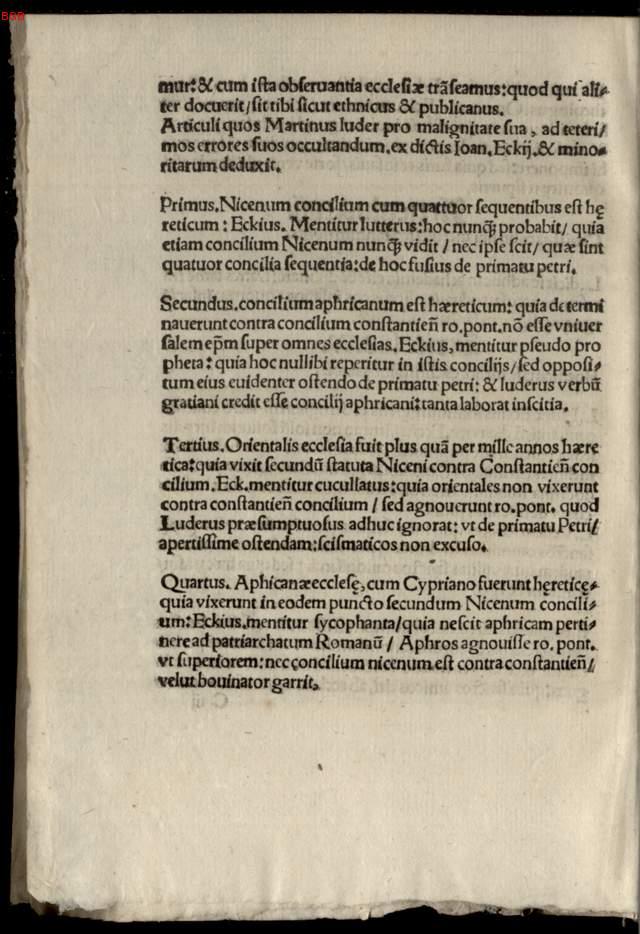 BSB
mur: & cum ista obseruantia ecclesiæ trãseamus: quod qui ali-
ter docuerit / sit tibi sicut ethnicus & publicanus.
Articuli quos Martinus luder pro malignitate sua, ad teteri/
mos errores suos occultandum. ex dictis Ioan. Eckij. & mino-
ritarum deduxit.
Primus. Nicenum concilium cum quattuor sequentibus est hę
reticum: Eckius. Mentitur lutterus: hoc nunqȝ probabit / quia
etiam concilium Nicenum nunqȝ vidit / nec ipse scit / quæ sint
quatuor concilia sequentia: de hoc fusius de primatu petri.
Secundus. concilium aphricanum est hæreticum: quia determi
nauerunt contra concilium constantieñ ro. pont. nõ esse vniuer
salem ep̃m super omnes ecclesias. Eckius, mentitur pseudo pro
pheta: quia hoc nullibi reperitur in istis concilijs / sed opposi-
tum eius euidenter ostendo de primatu petri: & luderus verbũ
gratiani credit esse concilij aphricani: tanta laborat inscitia.
Tertius. Orientalis ecclesia fuit plus quã per mille annos hære
tica: quia vixit secundũ statuta Niceni contra Constantieñ con
cilium. Eck. mentitur cucullatus: quia orientales non vixerunt
contra constantieñ concilium / sed agnouerunt ro. pont. quod
Luderus præsumptuosus adhuc ignorat: vt de primatu Petri/
apertissime ostendam: scismaticos non excuso.
Quartus. Aphicanæ ecclesę, cum Cypriano fuerunt hęreticę-
quia vixerunt in eodem puncto secundum Nicenum concili-
um: Eckius. mentitur sycophanta / quia nescit aphricam perti-
nere ad patriarchatum Romanũ / Aphros agnouisse ro. pont.
vt superiorem: nec concilium nicenum est contra constantieñ/
velut bouinator garrit.